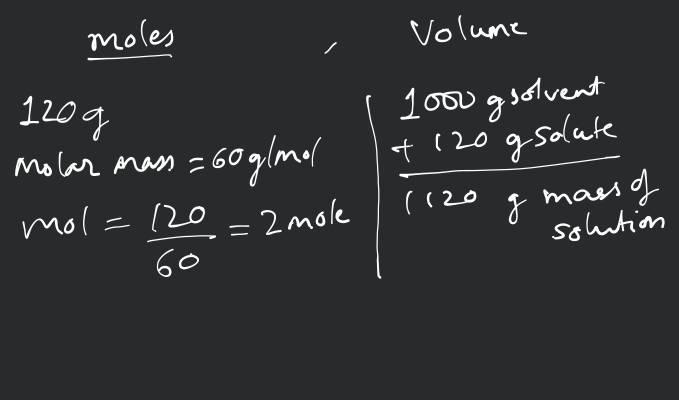 moles , Volume
120g
molar mass = 60g/mol
mol = 120/60 = 2 mole
1000 g solvent
+ 120 g solute
1120 g mass of
solution